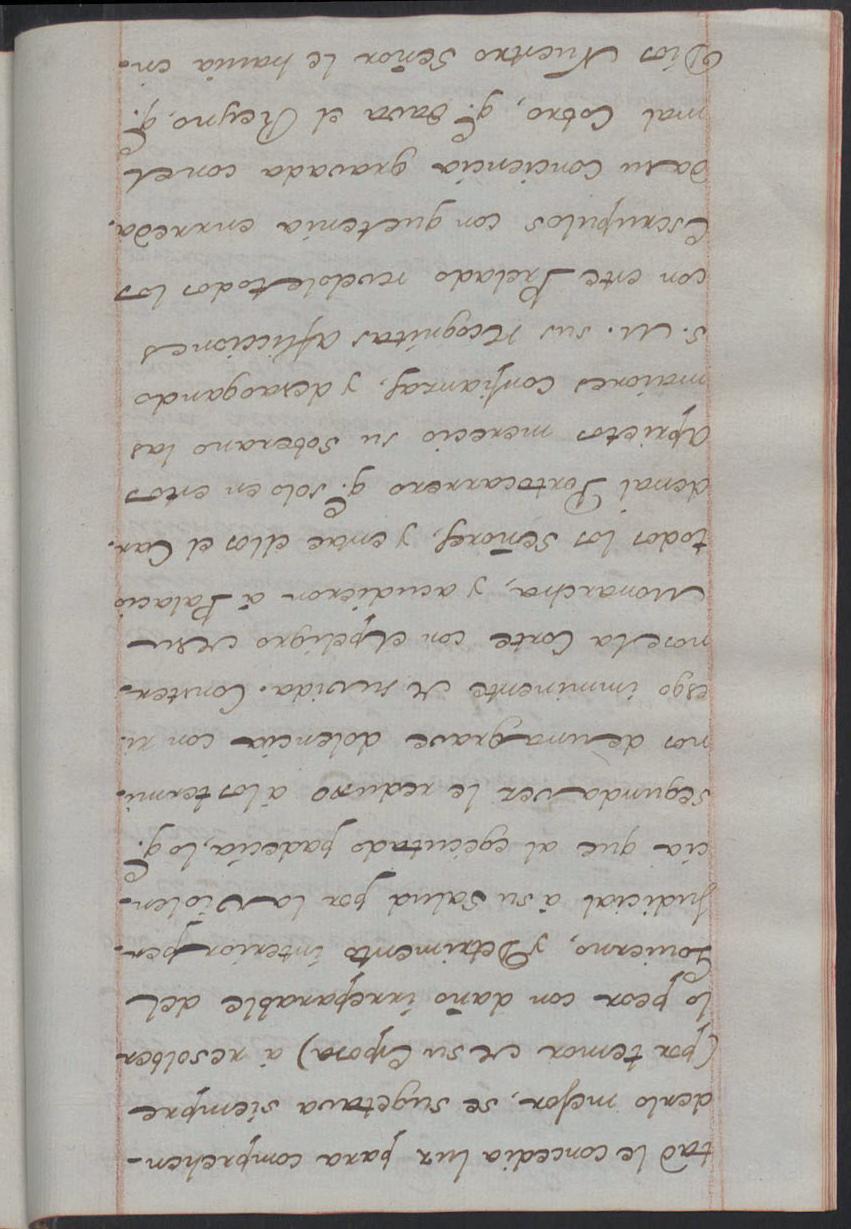 tad le concedia luz para comprehen-
derlo mejor, se sugetava siempre
(por temor de su Esposa) à resolber
lo peor con daño irreparable del
Govierno, y Detrimento interior per-
judicial à su Salud por la Violen-
cia que al egecutado padecia, lo q.e
segunda vez le reduxo à los termi-
nos de una grave dolencia con ri-
esgo imminente de su vida. Conster-
nose la Corte con el peligro de su
Monarcha, y acudieron à Palacio
todos los Señores, y entre ellos el Car-
denal Portocarrero q.e solo en estos
aprietos merecio su Soberano las
maiores confianzas, y desaogando
S. M. sus recognitas aflicciones
con este Prelado revelole todos los
Escrupulos con que tenia enrreda-
da su Conciencia gravada con el
mal Cobro, q.e dava el Reyno, q.e
Dios Nuestro Señor le havia en-